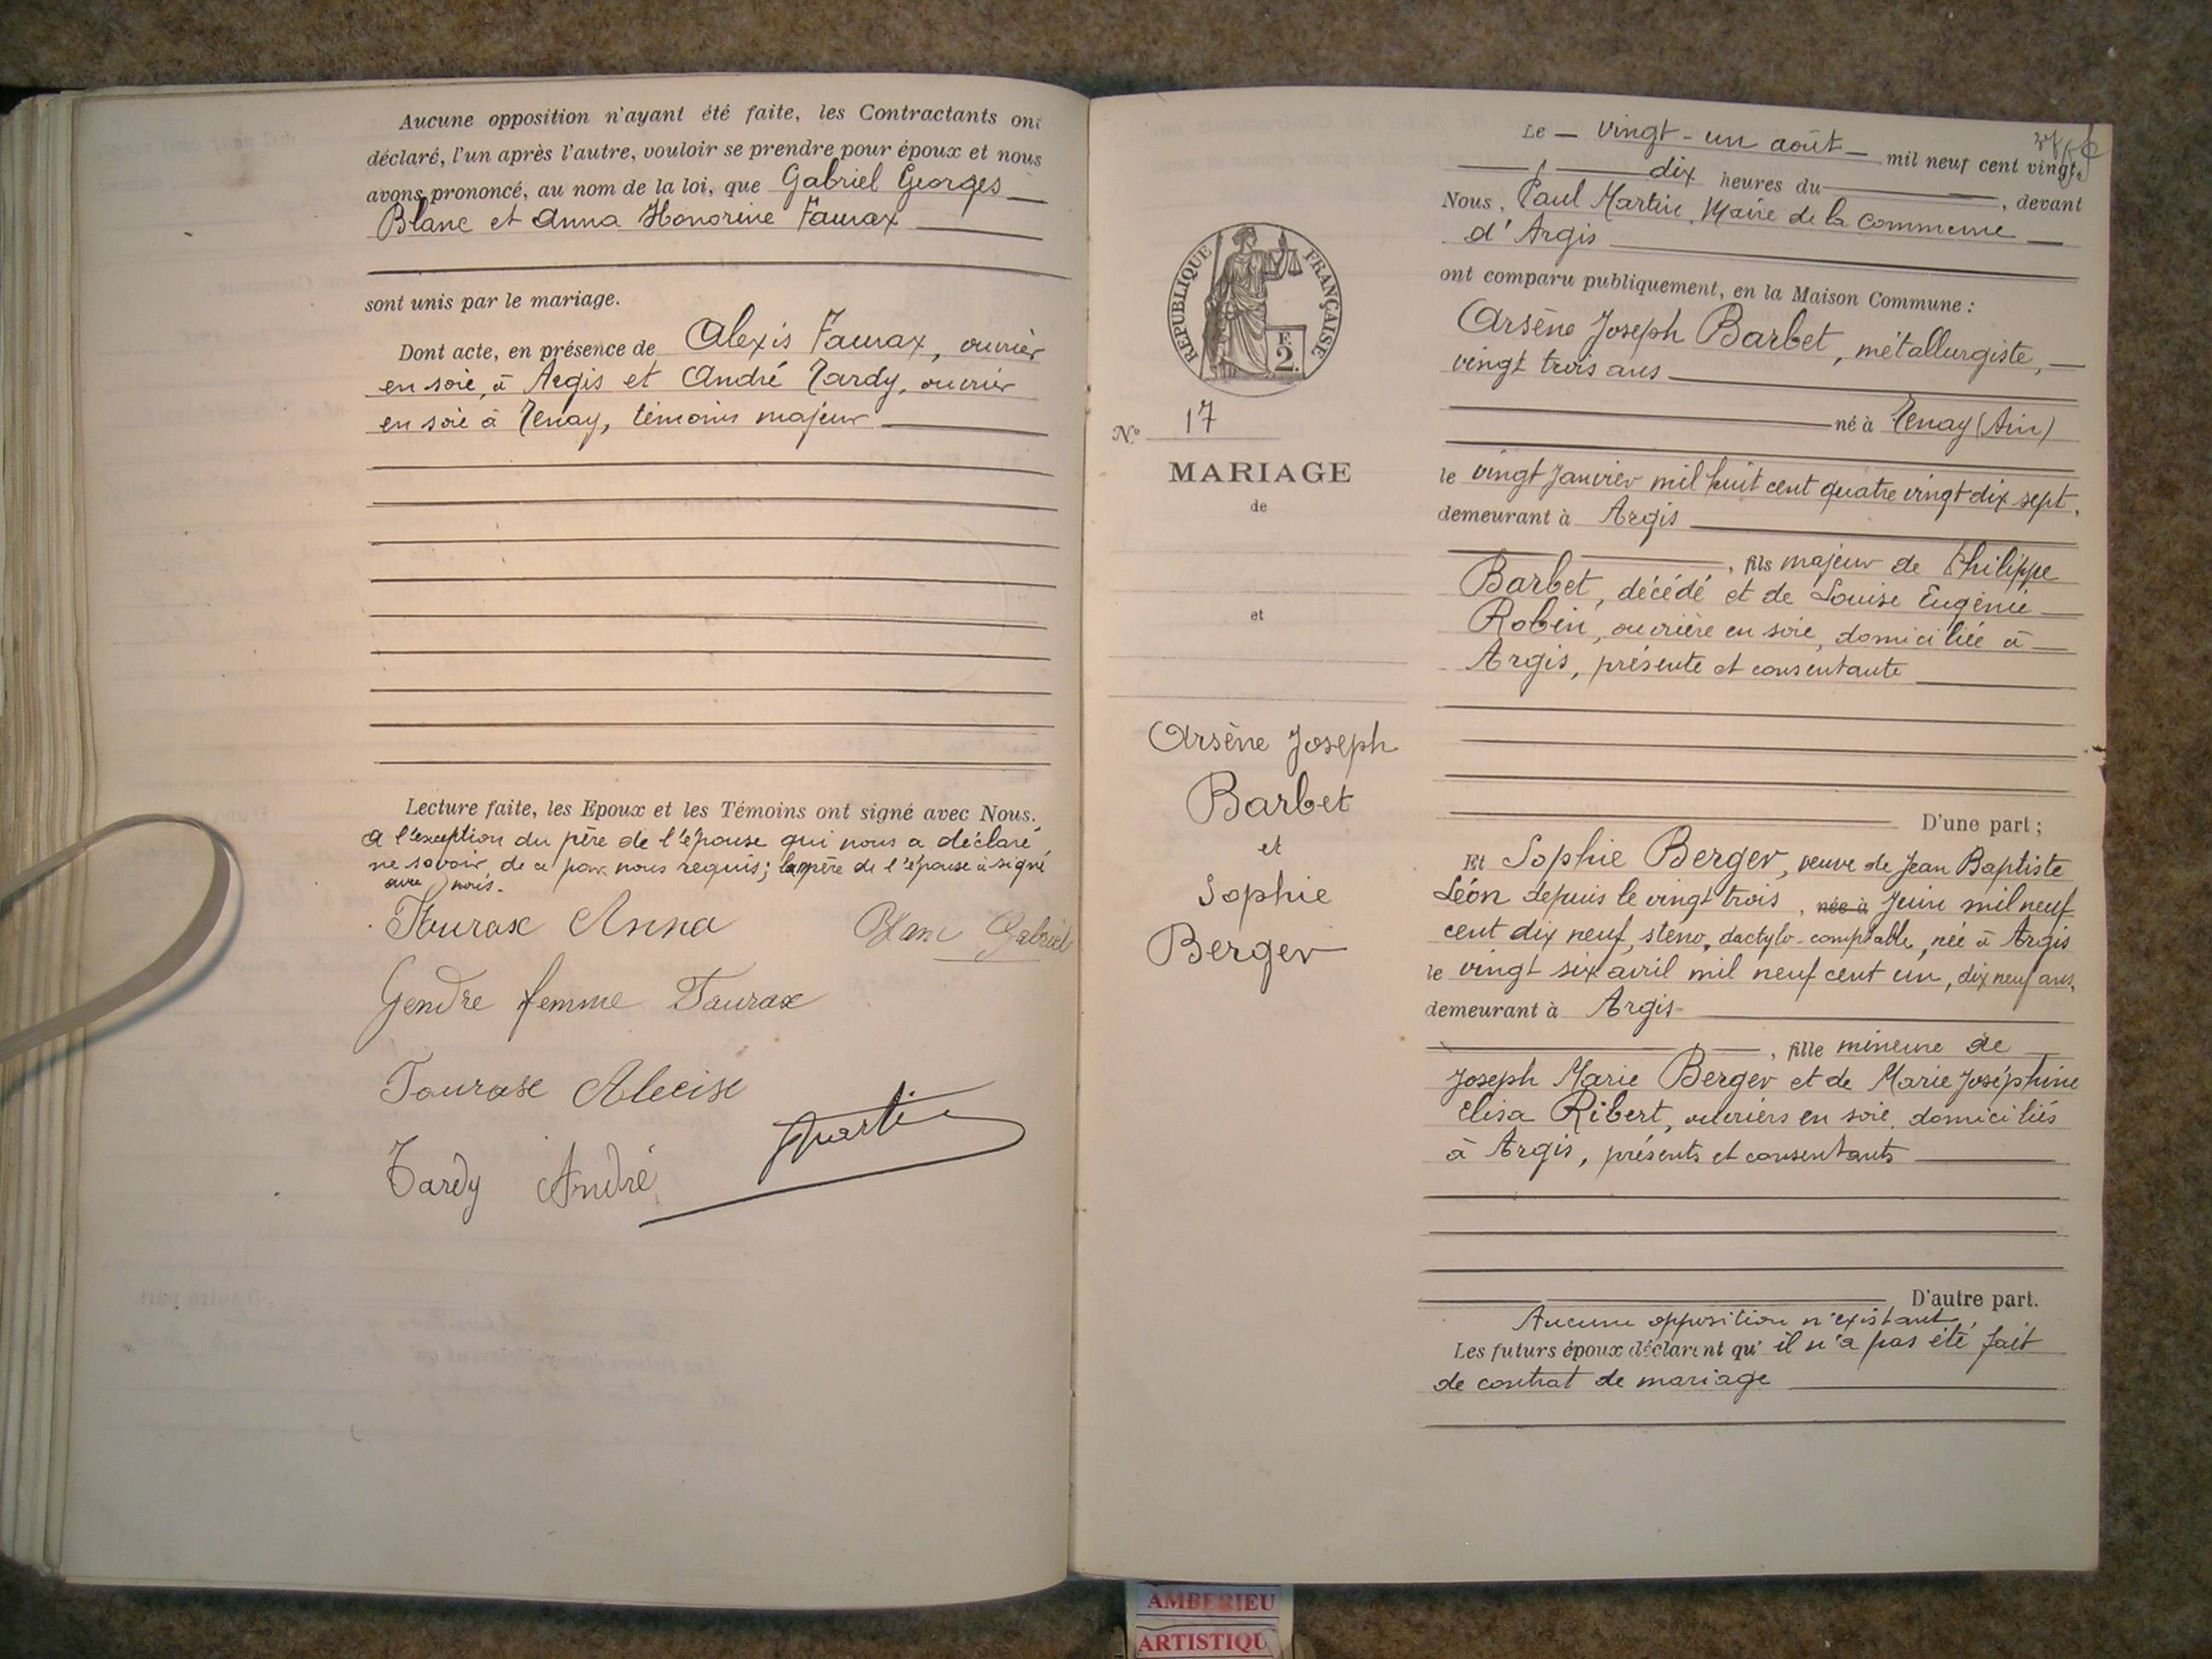 Aucune opposition n'ayant été faite, les Contractants ont
déclaré, l'un après l'autre, vouloir se prendre pour époux et nous
avons prononcé, au nom de la loi, que Gabriel Georges
Blanc et Anna Honorine Faurax
sont unis par le mariage.
Dont acte, en présence de Alexis Faurax, ouvrier
en soie, à Argis et André Tardy, ouvrier
en soie à Tenay, témoins majeur
Lecture faite, les Epoux et les Témoins ont signé avec Nous.
A l'exception du père de l'épouse qui nous a déclaré
ne savoir, de ce par nous requis; la mère de l'épouse a signé
avec nous.
Faurax Anna
Blanc Gabriel
Gendre femme Faurax
Faurax Alecise
Martin
Tardy André
RÉPUBLIQUE FRANÇAISE
F.
2.
N° 17
MARIAGE
de
et
Arsène Joseph
Barbet
et
Sophie
Berger
Le vingt-un août mil neuf cent vingt,
dix heures du , devant
Nous, Paul Martin, Maire de la commune
d'Argis
ont comparu publiquement, en la Maison Commune :
Arsène Joseph Barbet, métallurgiste,
vingt trois ans
né à Tenay (Ain)
le vingt janvier mil huit cent quatre vingt dix sept,
demeurant à Argis
, fils majeur de Philippe
Barbet, décédé et de Louise Eugénie
Robin, ouvrière en soie, domiciliée à
Argis, présente et consentante
D'une part ;
Et Sophie Berger, veuve de Jean Baptiste
Léon depuis le vingt trois , née à juin mil neuf
cent dix neuf, sténo, dactylo-comptable, née à Argis
le vingt six avril mil neuf cent un, dix neuf ans,
demeurant à Argis
, fille mineure de
Joseph Marie Berger et de Marie Joséphine
Elisa Ribert, ouvriers en soie, domiciliés
à Argis, présents et consentants
D'autre part.
Aucune opposition n'existant,
Les futurs époux déclarent qu'il n'a pas été fait
de contrat de mariage
AMBERIEU
ARTISTIQU